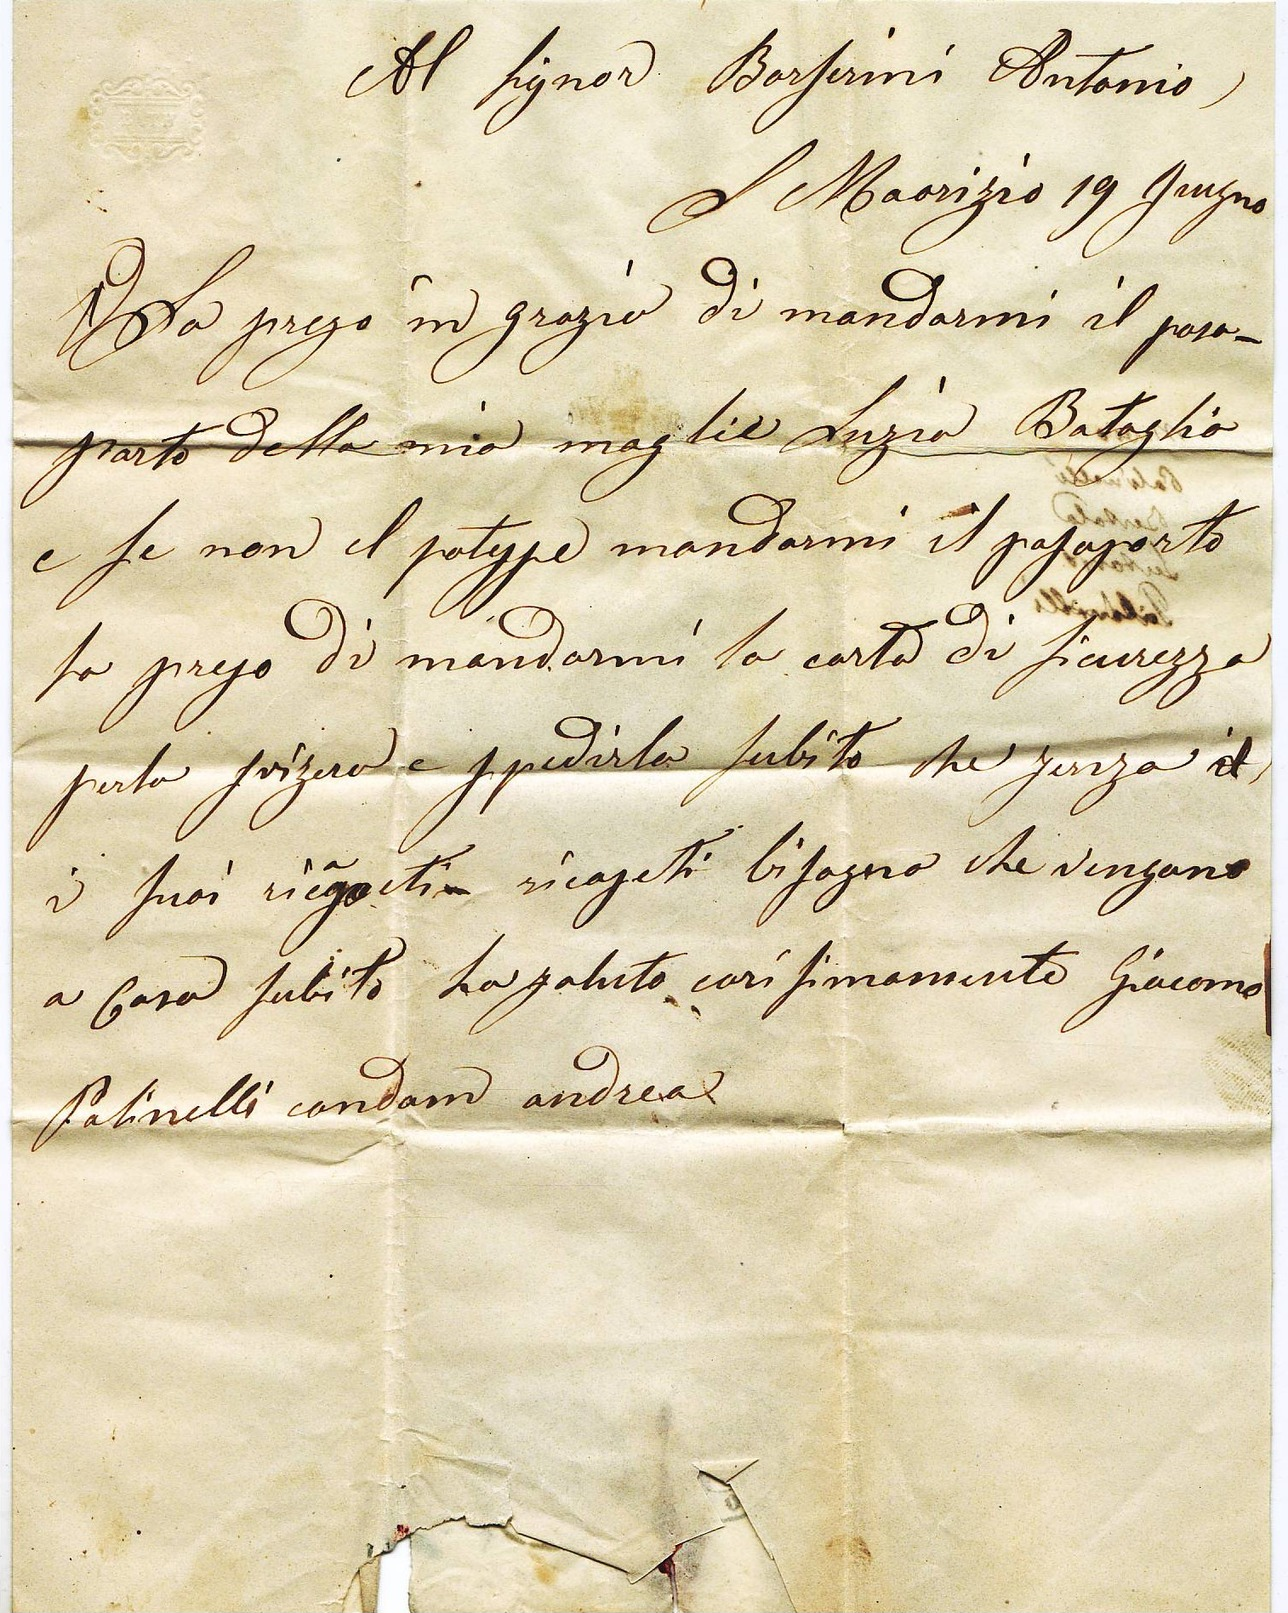 Al Signor Borserini Antonio
S Maorizio 19 Giugno
La prego in grazia di mandarmi il pasa-
porto della mia moglie Luzia Bataglia
e se non il potesse mandarmi il pasaporto
la prego di mandarmi la carta di sicurezza
perla svizera e spedirla subito che senza il
i suoi ricapeti bisogno che vengano
a Casa subito La saluto carisimamente Giacomo
Polinelli condam andrea